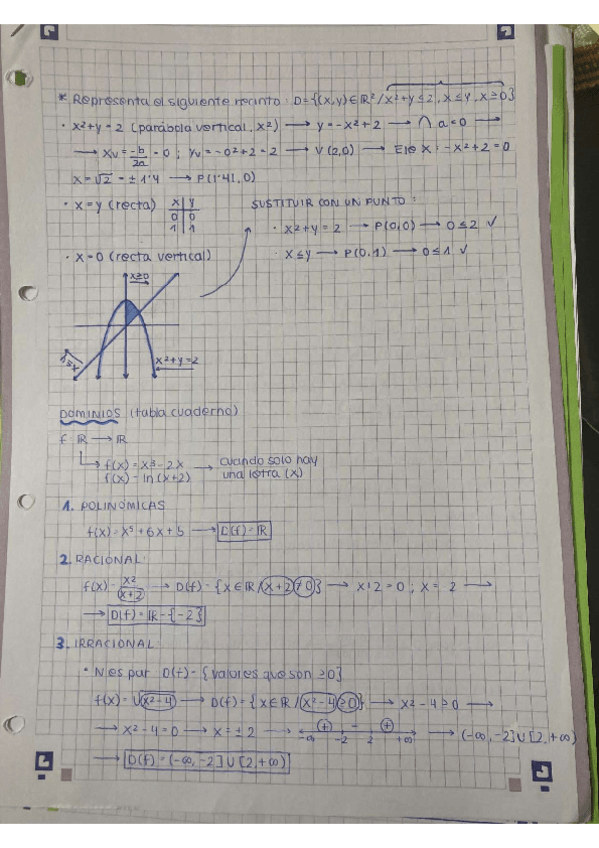 * Representa el siguiente recinto: D={(x,y)∈ℝ²/x²+y≤2, x≤y, x≥0}
· x²+y=2 (parábola vertical, x²) → y=-x²+2 → ∩ a<0 →
→ Xv = -b/2a = 0 ; Yv = -0²+2=2 → V(2,0) → Eje X: -x²+2=0
x=√2 = ±1'4 → P(1'41,0)
· x=y (recta) x y 0 0 1 1
SUSTITUIR CON UN PUNTO:
· x²+y=2 → P(0,0) → 0≤2 ✓
· x≤y → P(0,1) → 0≤1 ✓
· x=0 (recta vertical)
x≥0
x≤y
x²+y=2
DOMINIOS (tabla cuaderno)
f: ℝ → ℝ
→ f(x) = x³-2x → cuando solo hay
f(x) = ln(x+2) una letra (x)
1. POLINÓMICAS
f(x)=x⁵+6x+b → D(f)=ℝ
2. RACIONAL:
f(x)= x²/(x+2) → D(f)={x∈ℝ/x+2≠0} → x+2=0 ; x= 2 →
→ D(f)=ℝ-{-2}
3. IRRACIONAL:
· N es par D(f)={valores que son ≥0}
f(x)=√(x²-4) → D(f)={x∈ℝ/x²-4≥0} → x²-4≥0 →
→ x²-4=0 → x=±2 → -∞ (+) -2 - 2 (+) +∞ → (-∞,-2]∪[2,+∞)
→ D(f)=(-∞,-2]∪[2,+∞)